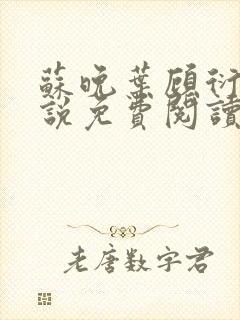 蘇晚葉顧衍
說免費閱讀
老唐数字君